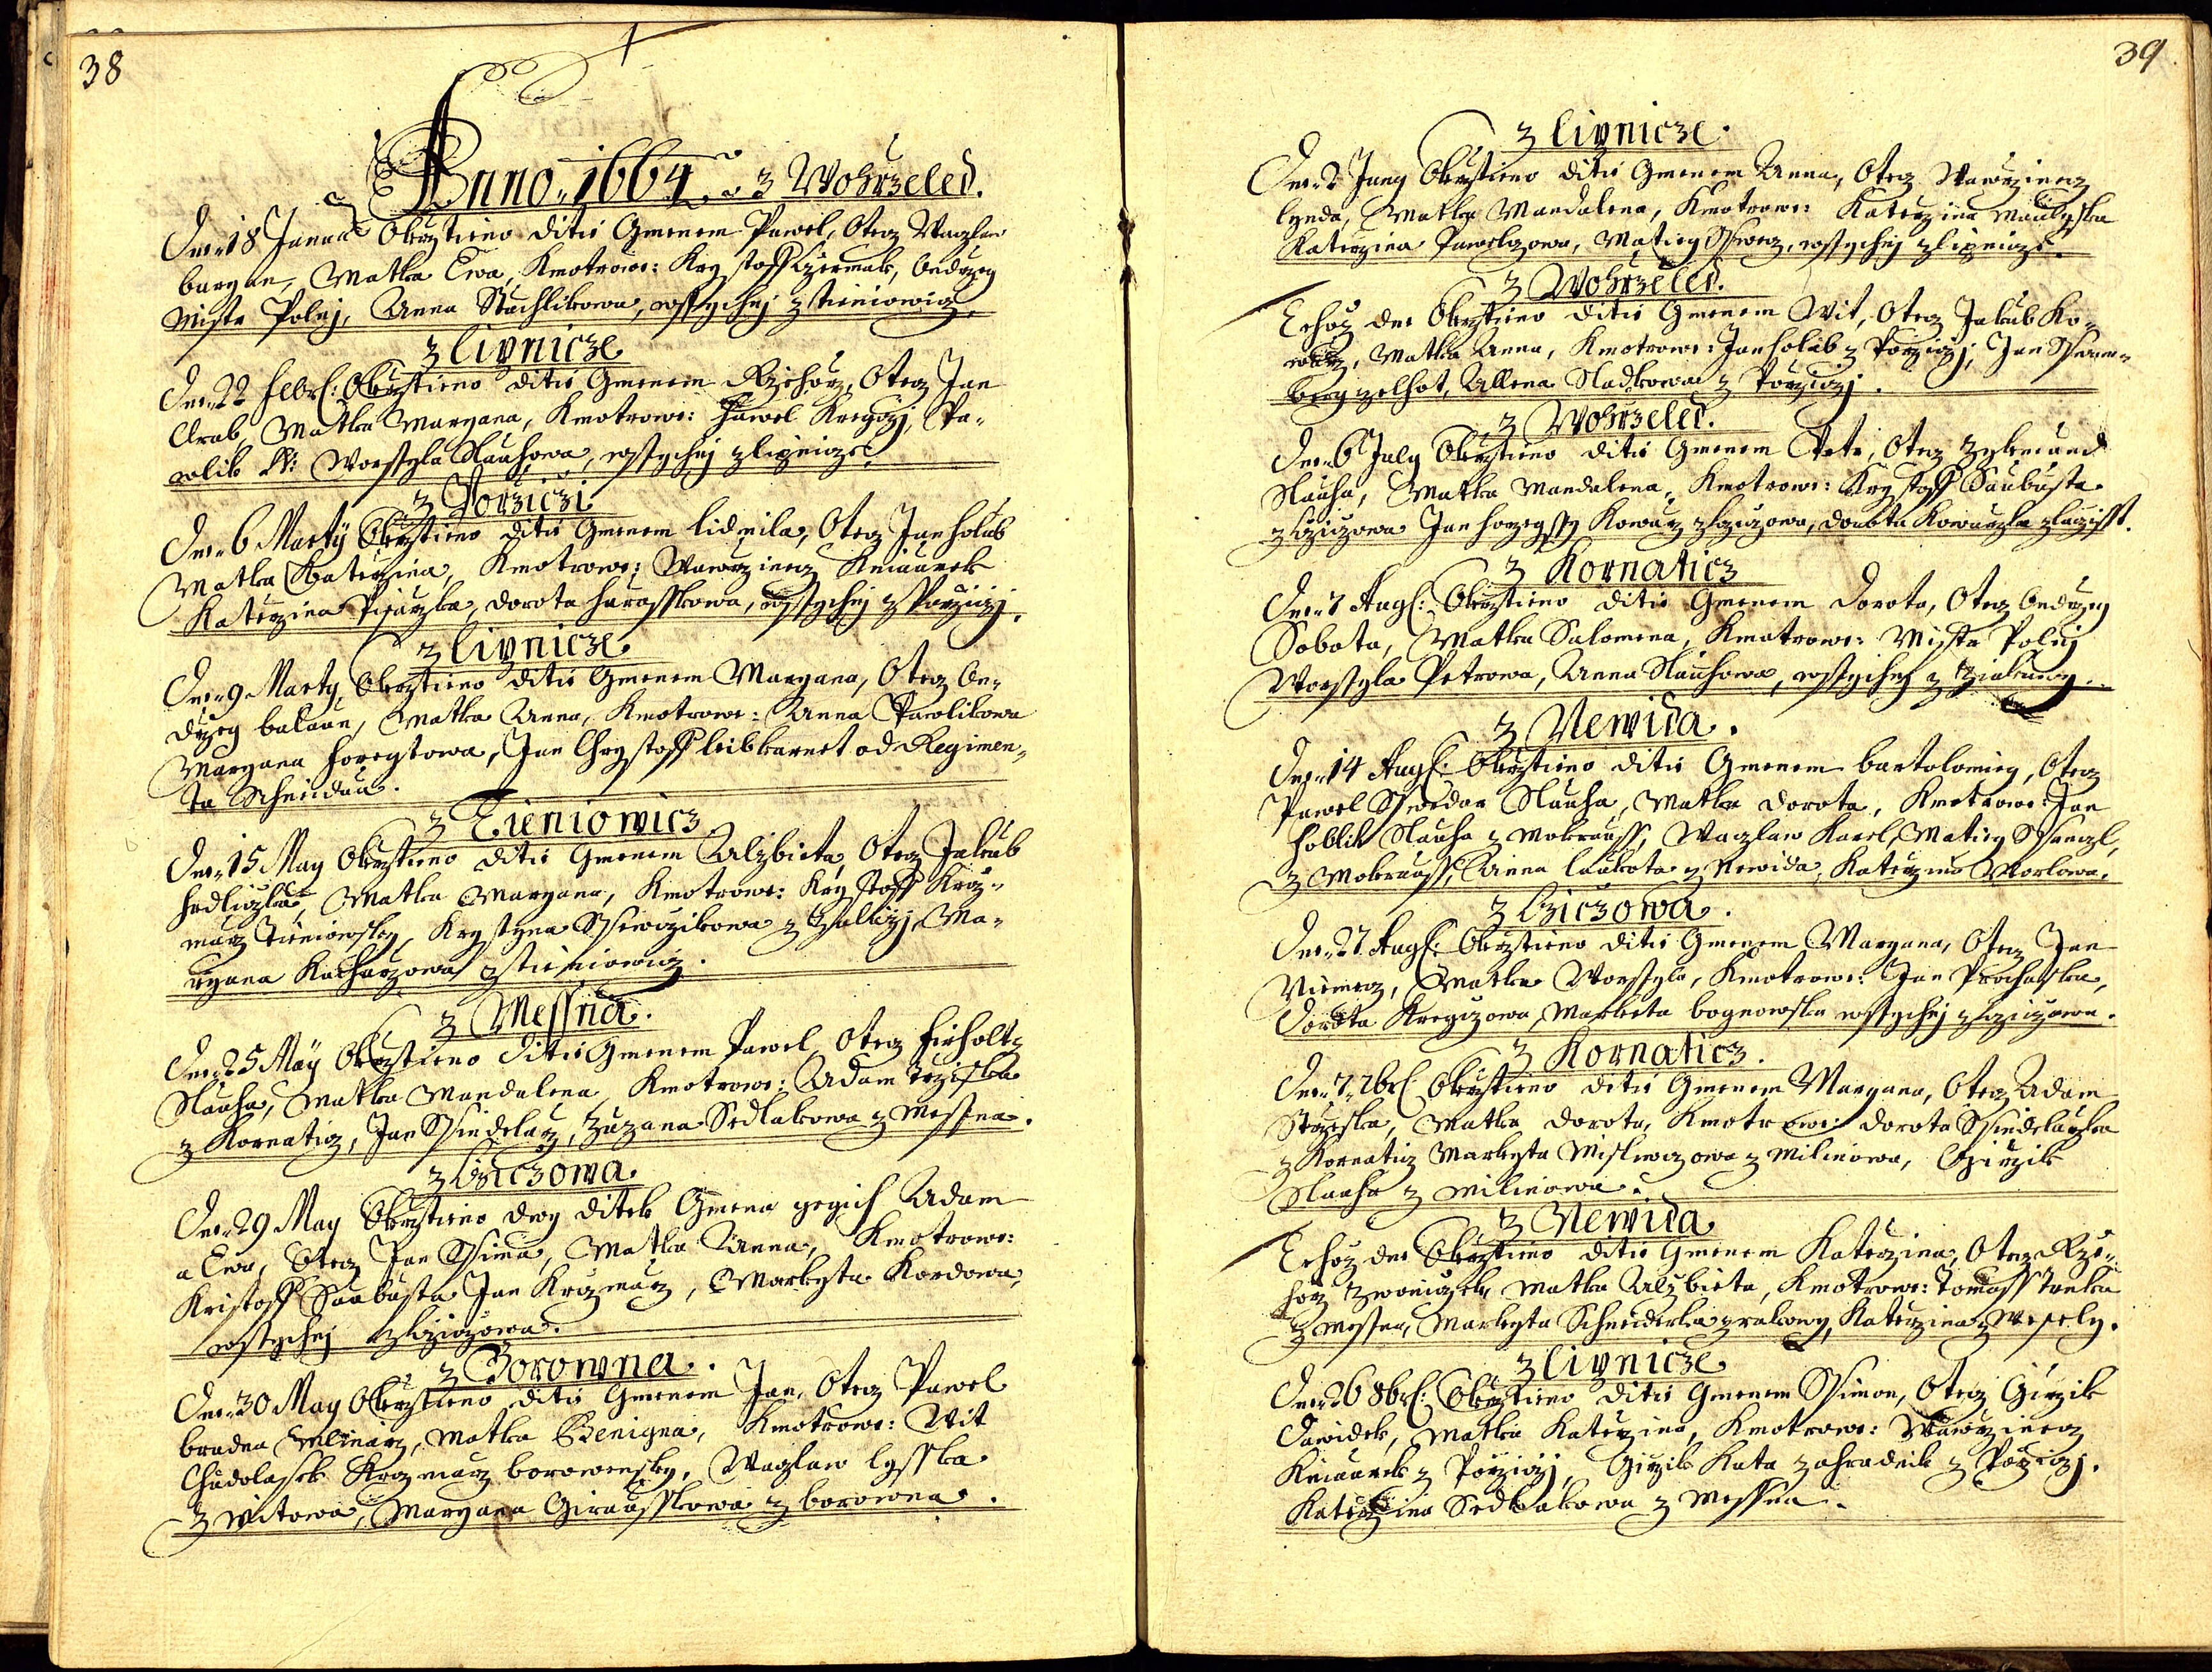 38
Anno 1664. z Wohrzeled.
Dne 18 Januar Okrztieno ditie Gmenem Pawel, Otecz Waczlaw
Matka Ewa, Kmotrowe: Krysstoff Czermak, Ondrzeg
Mistr Polnj, Anna Stachlikowa, wssychnj z Tieniowicz.
z Lipnicze
Dne 22 Febr: Okrztieno ditie Gmenem Rzehorz, Otecz Jan
Matka Maryana, Kmotrowe: Hawel Kregczj, Pa-
wlik Worssyla Slauhowa, wssychnj z Lipnicze.
z Porziczi
Dne 6 Martÿ Okrztieno ditie Gmenem Lidmila, Otecz Jan Holub
Matka Katerzina, Kmotrowe: Wawrzinecz Kniaurek
Katerzina Pisarzka, Dorota Harasskowa, wssychnj z Porziczj.
z Lipnicze
Dne 9 Marty Okrztieno ditie Gmenem Maryana, Otecz On-
drzeg Balaun, Matka Anna, Kmotrowe: Anna Pawlikowa
Maryana Foregtowa, Jan Chrystoff Leibkornet od Regimen-
ta Schneidau.
z Tieniowicz
Dne 15 May Okrztieno ditie Gmenem Alzbieta, Otecz Jakub
Hedliczka, Matka Maryana, Kmotrowe: Krysstoff Krcz-
marz Tieniowsky, Krystyna Ssewczikowa z Zaluzj, Ma-
ryana Kucharzowa z Tieniowicz.
z Messna.
Dne 25 Maÿ Okrztieno ditie Gmenem Pawel, Otecz Firholtz
Slauha, Matka Mandalena, Kmotrowe: Adam
z Kornaticz, Jan Ssindelarz, Zuzana Sedlakowa z Messna.
z Cziczowa.
Dne 29 May Okrztieno dwy ditek Gmena gegich Adam
a Ewa, Otecz Jan Ssima, Matka Anna, Kmotrowe:
Kristoff Saubusta Jan Krczmarz, Markyta Kordowa,
wssychnj z Cziczowa.
z Borowna.
Dne 30 May Okrztieno ditie Gmenem Jan, Otecz Pawel
Bradna Mlinarz, Matka Benigna, Kmotrowe: Wit
Chudolassek Krczmarz borowensky, Waczlaw Lysska
z Mitowa, Maryana Girausskowa z Borowna.
39
z Lipnicze.
Dne 2 Juny Okrztieno ditie Gmenem Anna, Otecz Wawrzinecz
Lynda, Matka Mandalena, Kmotrowe: Katerzina
Katerzina Pawelczowa, Matieg Sswecz, wssychnj z Lipnicze.
z Wohrzeled.
Tehoz dne Okrztieno ditie Gmenem Wit, Otecz Jakub Ko-
warz, Matka Anna, Kmotrowe: Jan Holub z Porziczj, Jan
z Lhot, Allena Sladkowa z Porziczj.
z Wohrzeled.
Dne 6 July Okrztieno ditie Gmenem Petr, Otecz Zykmund
Slauha, Matka Mandalena, Kmotrowe: Krysstoff Saubusta
z Cziczowa Jan Horzegssy Kowarz z Cziczowa, Dorota Kowarzka
z Kornaticz
Dne 7 Aug: Okrztieno ditie Gmenem Dorota, Otecz Ondrzeg
Sobota, Matka Salomena, Kmotrowe: Mistr Polnj
Worssyla Petrowa, Anna Slauhowa, wssychnj z
z Newida.
Dne 14 Aug: Okrztieno ditie Gmenem Bartolomieg, Otecz
Pawel Sswedar Slauha, Matka Dorota, Kmotrowe: Jan
Hoblik Slauha z Mokrauss, Waczlaw Karel, Matieg
z Mokrauss, Anna Laukota z Newida, Katerzina Worlowa.
z Cziczowa.
Dne 27 Aug: Okrztieno ditie Gmenem Maryana, Otecz Jan
Niemecz, Matka Worssyla, Kmotrowe: Jan Prochaska,
Dorota Kregczowa, Markéta Bognowska wssychnj z Cziczowa.
z Kornaticz.
Dne 7 7br: Okrztieno ditie Gmenem Maryana, Otecz Adam
Matka Dorota, Kmotrowe: Dorota Ssindelarzka
z Kornaticz Markyta Misliweczowa z Milinowa, Girzik
Slauha z Milinowa.
z Newida
Tehoz dne Okrztieno ditie Gmenem Katerzina, Otecz Rze-
horz Zwoniczek, Matka Alzbieta, Kmotrowe: Tomass
z Messna, Markyta Schneiderka z Rakowy, Katerzina z Wesely.
z Lipnicze
Dne 26 8br: Okrztieno ditie Gmenem Ssimon, Otecz Girzik
Dawidek, Matka Katerzina, Kmotrowe: Wawrzinecz
Kniaurek z Porziczj, Girzik Kata zahradnik z Porziczj.
Katerzina Sedlakowa z Messna.